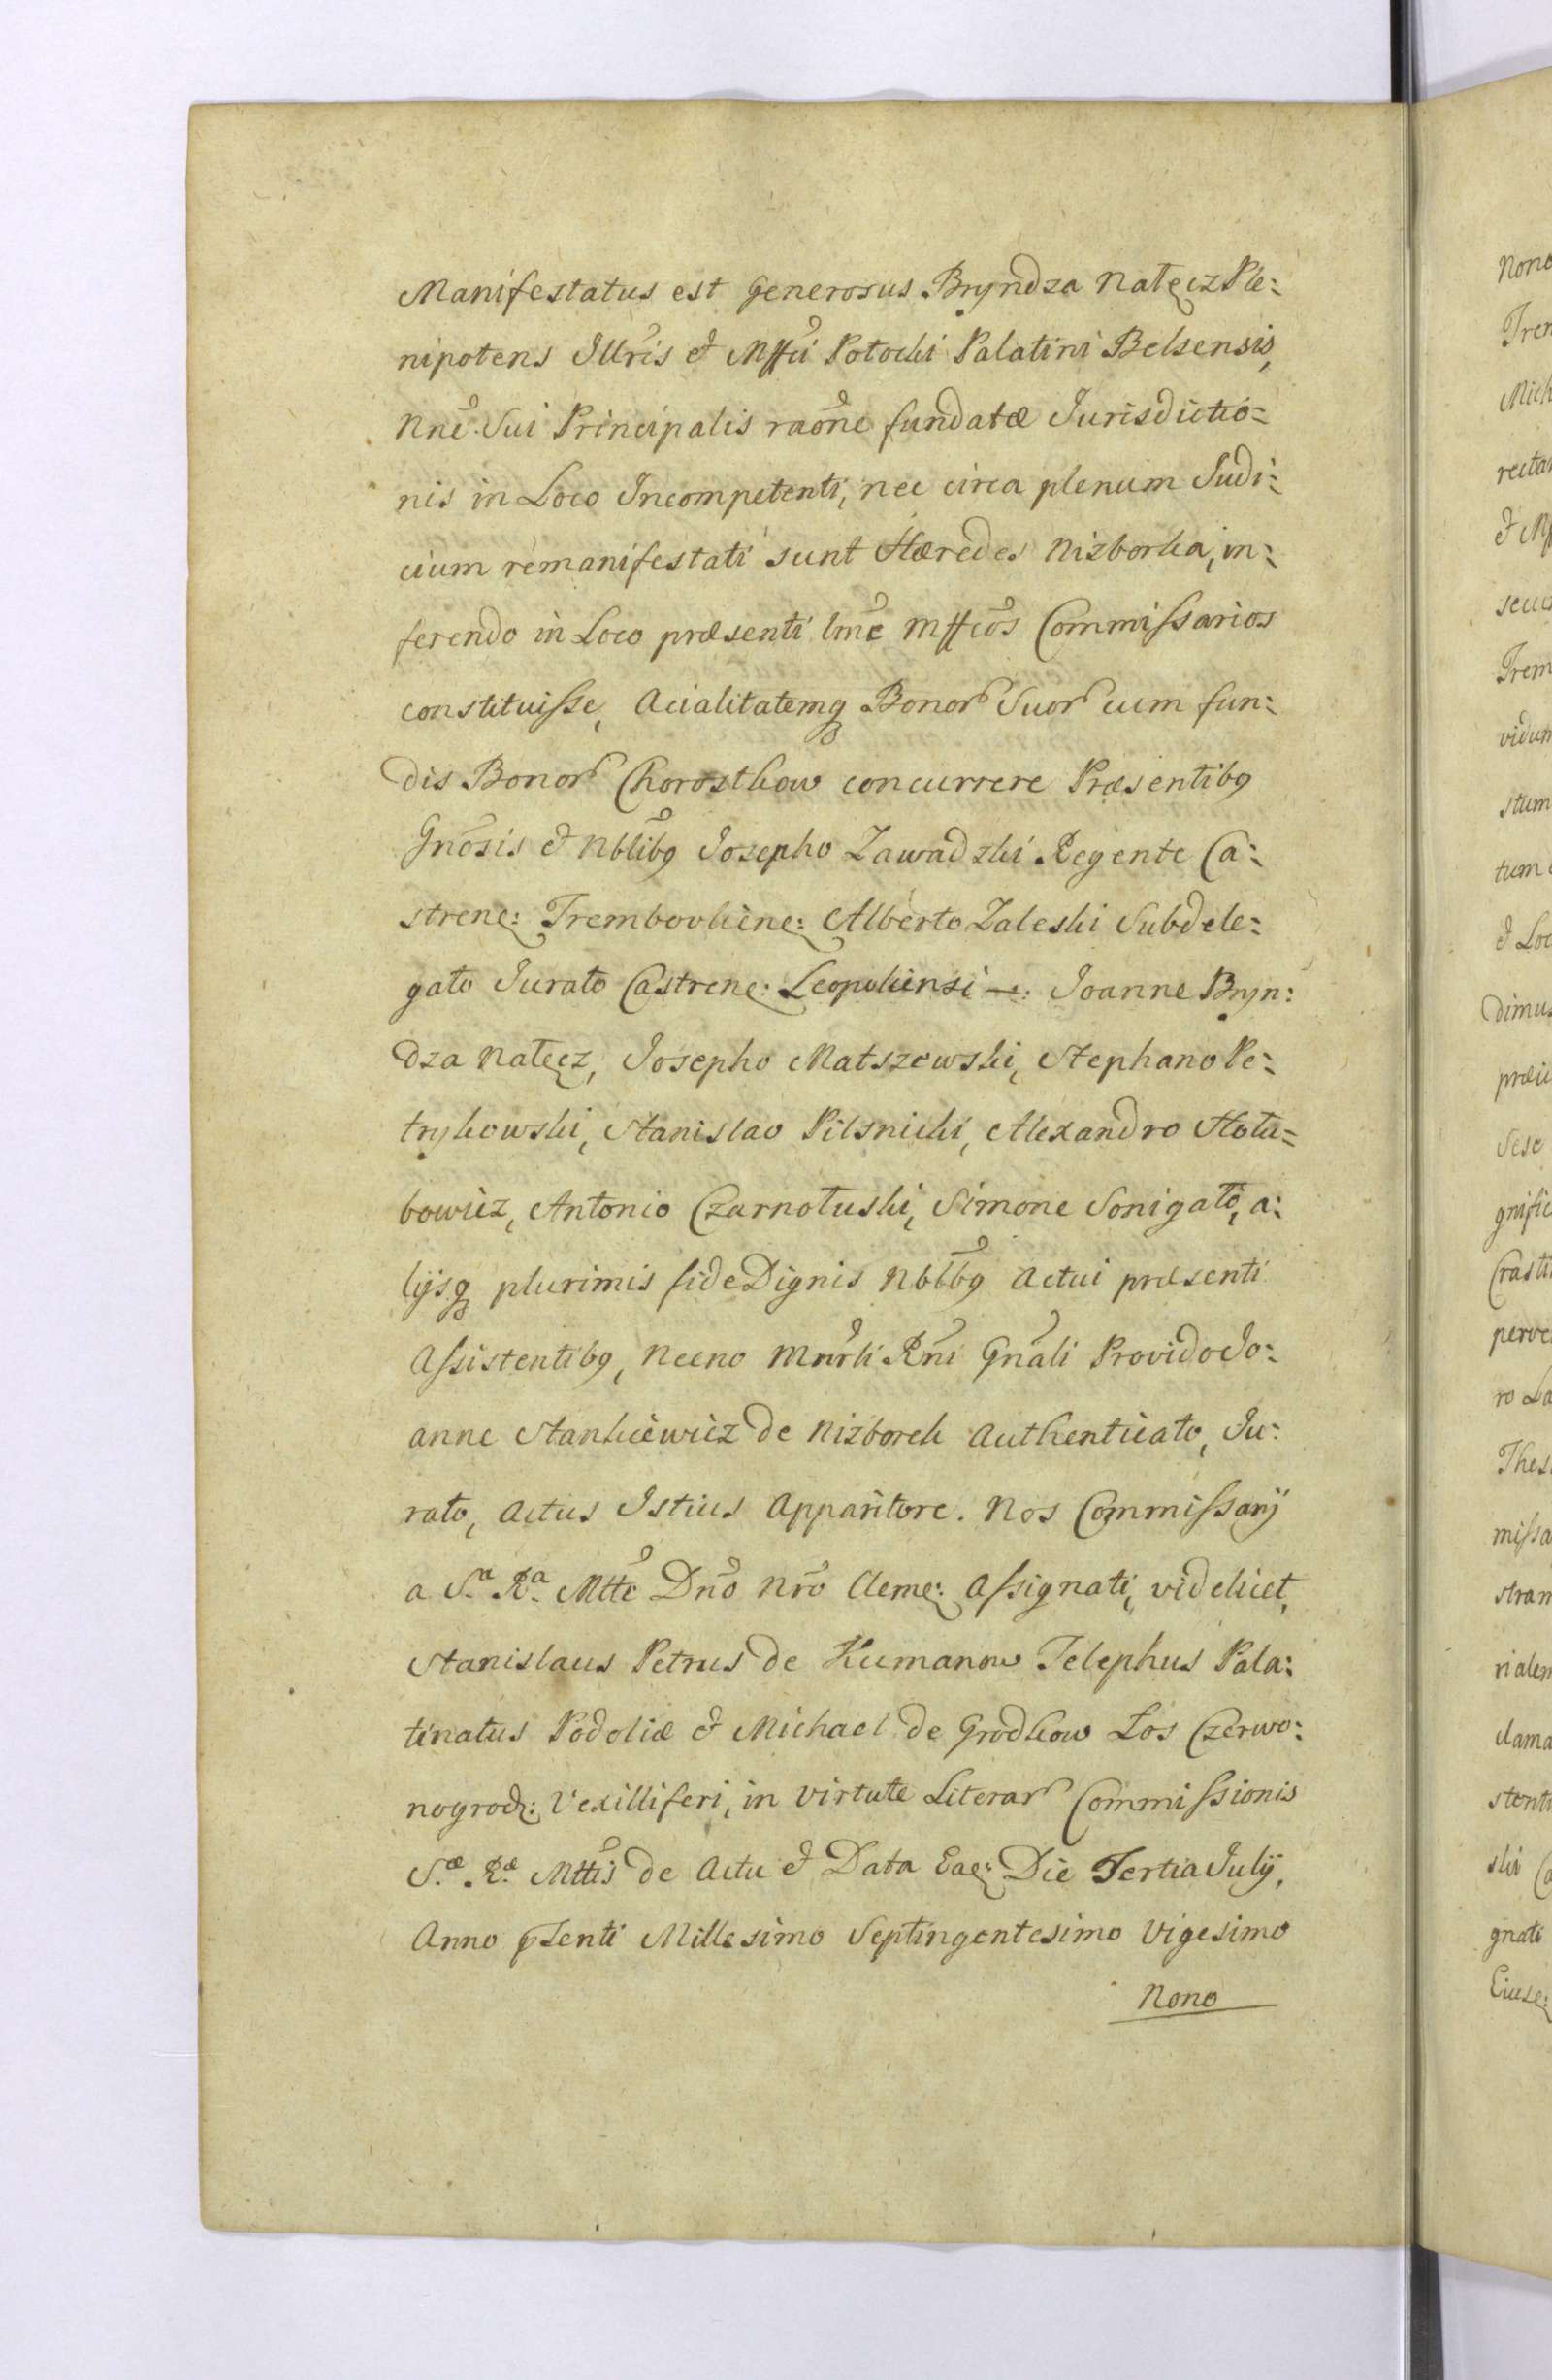 Manifestatus est Generosus Bryndza Natęcz Ple:
nipotens Jllris & Mffci Potocki Palatini Belsensis,
Nne Sui Principalis raone fundatæ Jurisdictio=
nis in Loco Jncompetenti, nec circa plenum Judi:
cium remanifestati sunt Hæredes Nizborka, in:
ferendo in Loco præsenti Mffcos Commissarios
constituisse, Acialitatemq Bonor Suor cum fun:
dis Bonor Chorostkow concurrere Præsentibg
Gnosis & Nblibg Josepho Zawadzki Regente Ca:
strene: Trembovliene: Alberto Zaleski Subdele:
gato Jurato Castrene: Leopoliensi —: Joanne Bryn:
dza Natęcz, Josepho Matszewski, Stephano Pe:
trykowski, Stanislao Pilsnicki, Alexandro Hotu=
bowicz, Antonio Czarnotuski, Simone Sonigato, a:
lijsq plurimis fide Dignis Nblbg Actui præsenti
Assistentibg, Necno Mnrli Rni Gnali Provido Jo:
anne Stankiewicz de Nizborek Authenticato, Ju:
rato, Actus Istius Apparitore. Nos Commissarij
a S.a R.a Mtte Dno Nro Cleme: Assignati, videlicet,
Stanislaus Petrus de Kumanow Telephus Pala:
tinatus Podoliæ & Michael de Grodkow Łos Czerwo:
nogrod: Vexilliferi, in virtute Literar Commissionis
S.æ R.æ Mttis de Actu & Data Eae: Die Tertia July,
Anno pZenti Millesimo Septingentesimo Vigesimo
Nono